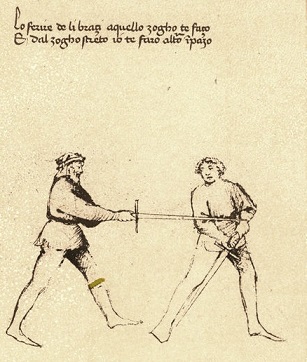 Lo ferire de li brazi aquello zogho te fazo
E dal zogho streto io te faro altro impazo